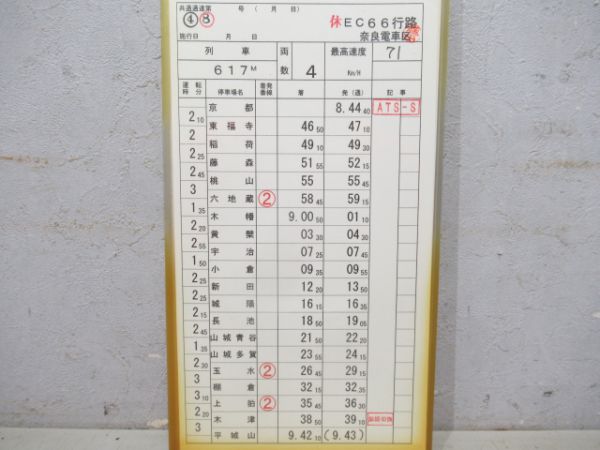 共通過達第 号 ( 月 日)
④ ⑧ 休 EC66行路
施行日 月 日 奈良電車区
列車 両数 最高速度 71
617M 4 Km/H
運転時分 停車場名 着発番線 着 発(通) 記事
京都 8.44 40 ATS-S
2 10
東福寺 46 50 47 10
2
稲荷 49 10 49 30
2 25
藤森 51 55 52 15
2 45
桃山 55 55 45
3
六地蔵 ② 58 45 59 15
1 35
木幡 9.00 50 01 10
2 20
黄檗 03 30 04 30
2 55
宇治 07 25 07 45
1 50
小倉 09 35 09 55
2 25
新田 12 20 13 50
2 25
城陽 16 15 16 35
2 15
長池 18 50 19 05
2 45
山城青谷 21 50 22 20
1 35
山城多賀 23 55 24 15
2 30
玉水 ② 26 45 29 15
3
棚倉 32 15 32 35
3 10
上狛 ② 35 45 36 30
2 20
木津 38 50 39 10
3
平城山 9.42 10 (9.43)